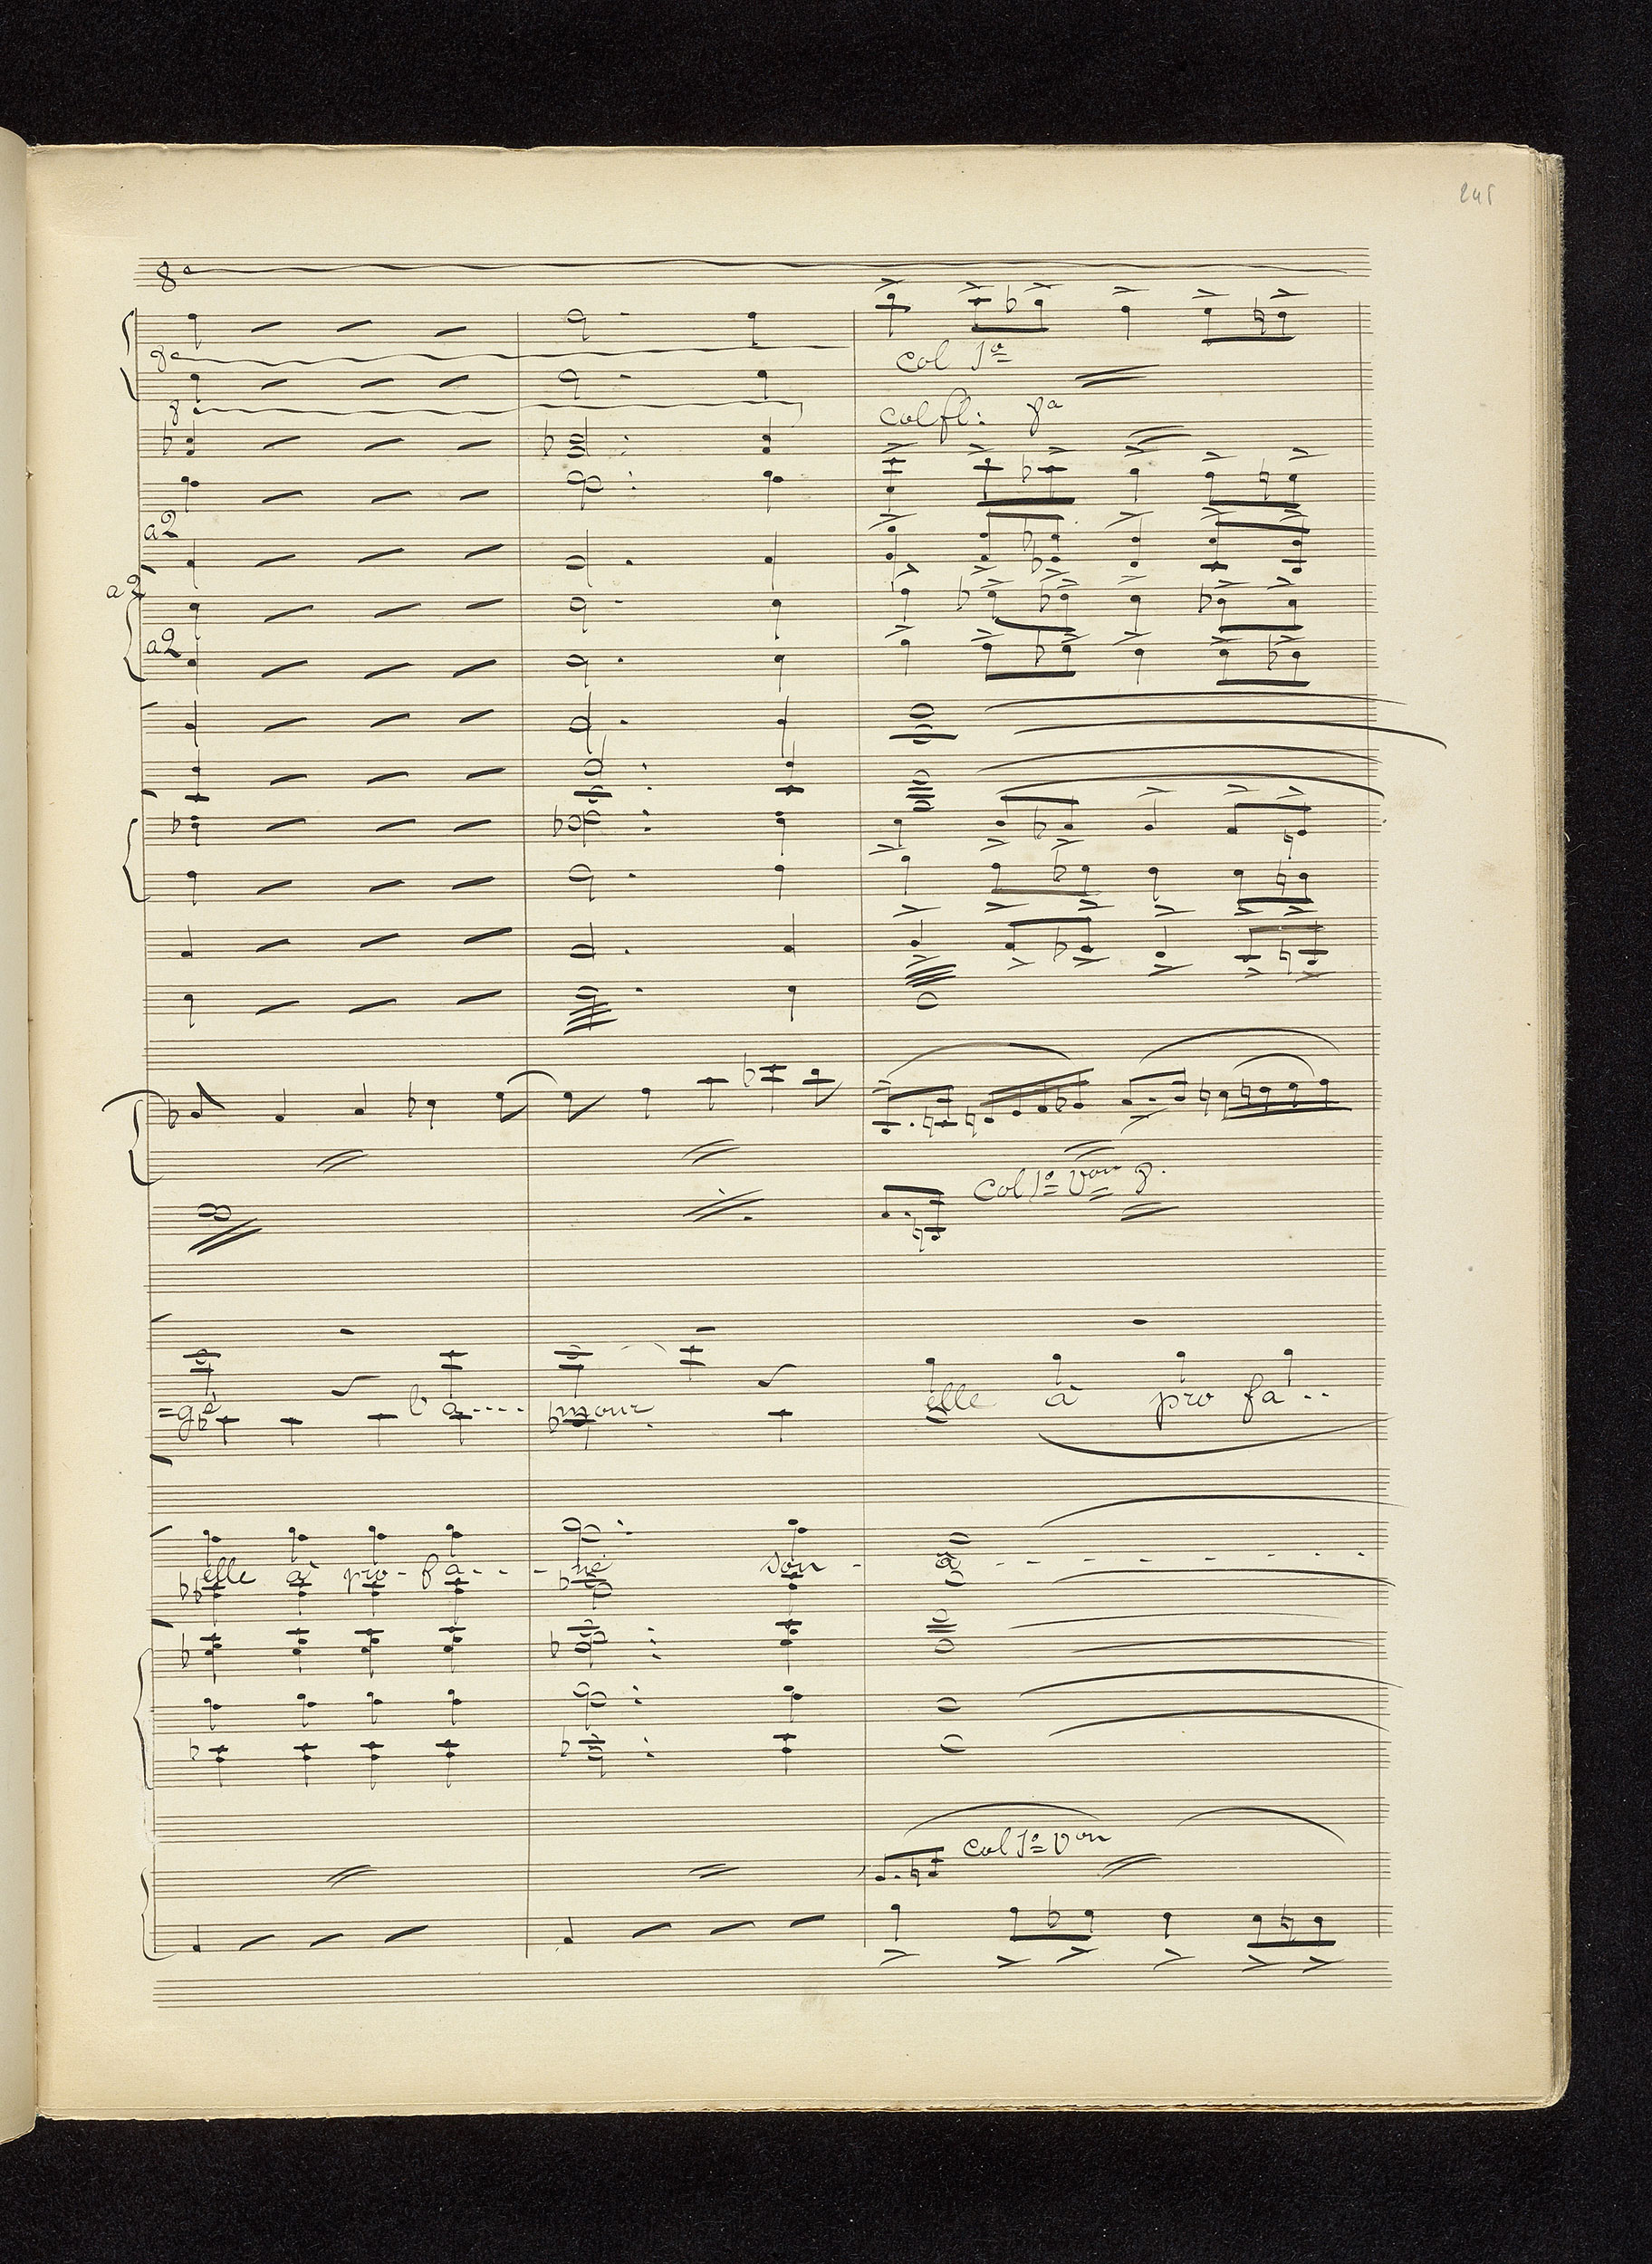 245
8a
8a
col 1o
8
col fl: 8a
a2
a2
a2
col 1o Von 8.
=gé l'a---- mour elle a pro fa--
elle a pro-fa---né son-a-------
col 1o Von